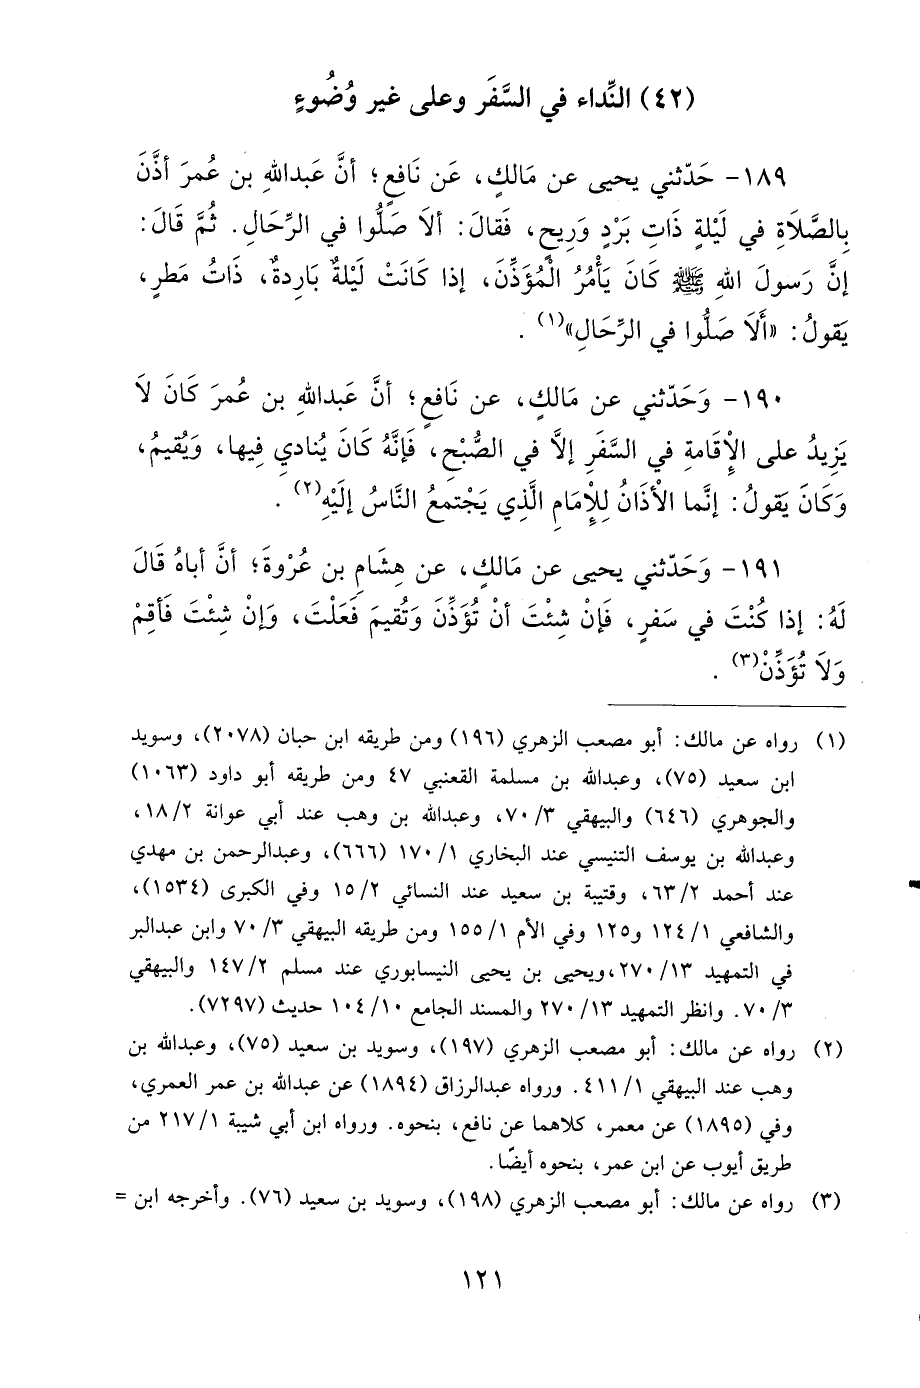 (٤٢) النِّداء في السَّفَر وعلى غير وُضُوءٍ
١٨٩- حَدّثني يحيى عن مَالكٍ، عَن نَافعٍ؛ أنَّ عَبدالله بن عُمرَ أذَّنَ
بِالصَّلَاةِ في لَيْلةٍ ذَاتِ بَرْدٍ وَرِيحٍ، فَقالَ: ألاَ صَلُّوا في الرِّحَالِ. ثُمَّ قَالَ:
إنَّ رَسولَ اللهِ ﷺ كَانَ يَأْمُرُ الْمُؤَذِّنَ، إذا كَانَتْ لَيْلةٌ بَاردةٌ، ذَاتُ مَطرٍ،
يَقولُ: «أَلَا صَلُّوا في الرِّحَالِ»(١) .
١٩٠- وَحَدّثني عن مَالكٍ، عن نَافعٍ؛ أنَّ عَبدالله بن عُمرَ كَانَ لاَ
يَزِيدُ على الإِقَامةِ في السَّفَرِ إلاَّ في الصُّبْحِ، فَإنَّهُ كَانَ يُنادي فِيها، وَيُقيمُ،
وَكَانَ يَقولُ: إنَّما الأْذَانُ لِلإِمَامِ الَّذي يَجْتمعُ النَّاسُ إلَيْهِ(٢) .
١٩١- وَحَدّثني يحيى عن مَالكٍ، عن هِشَامِ بن عُرْوةَ؛ أنَّ أباهُ قَالَ
لَهُ: إذا كُنْتَ في سَفرٍ، فَإنْ شِئْتَ أنْ تُؤَذِّنَ وَتُقيمَ فَعَلْتَ، وَإنْ شِئْتَ فَأقِمْ
وَلاَ تُؤَذِّنْ(٣) .
(١) رواه عن مالك: أبو مصعب الزهري (١٩٦) ومن طريقه ابن حبان (٢٠٧٨)، وسويد
ابن سعيد (٧٥)، وعبدالله بن مسلمة القعنبي ٤٧ ومن طريقه أبو داود (١٠٦٣)
والجوهري (٦٤٦) والبيهقي ٣/ ٧٠، وعبدالله بن وهب عند أبي عوانة ٢/ ١٨،
وعبدالله بن يوسف التنيسي عند البخاري ١/ ١٧٠ (٦٦٦)، وعبدالرحمن بن مهدي
عند أحمد ٢/ ٦٣، وقتيبة بن سعيد عند النسائي ٢/ ١٥ وفي الكبرى (١٥٣٤)،
والشافعي ١/ ١٢٤ و١٢٥ وفي الأم ١/ ١٥٥ ومن طريقه البيهقي ٣/ ٧٠ وابن عبدالبر
في التمهيد ١٣/ ٢٧٠،ويحيى بن يحيى النيسابوري عند مسلم ٢/ ١٤٧ والبيهقي
٣/ ٧٠. وانظر التمهيد ١٣/ ٢٧٠ والمسند الجامع ١٠/ ١٠٤ حديث (٧٢٩٧).
(٢) رواه عن مالك: أبو مصعب الزهري (١٩٧)، وسويد بن سعيد (٧٥)، وعبدالله بن
وهب عند البيهقي ١/ ٤١١. ورواه عبدالرزاق (١٨٩٤) عن عبدالله بن عمر العمري،
وفي (١٨٩٥) عن معمر، كلاهما عن نافع، بنحوه. ورواه ابن أبي شيبة ١/ ٢١٧ من
طريق أيوب عن ابن عمر، بنحوه أيضًا.
(٣) رواه عن مالك: أبو مصعب الزهري (١٩٨)، وسويد بن سعيد (٧٦). وأخرجه ابن =
١٢١